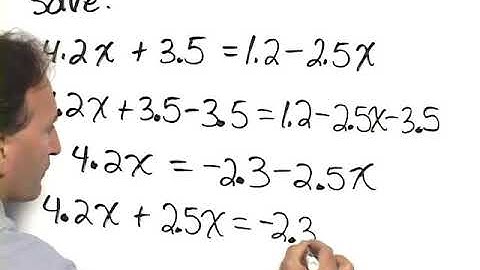 Solve:
4.2x + 3.5 = 1.2 - 2.5x
.2x + 3.5 - 3.5 = 1.2 - 2.5x - 3.5
4.2x = -2.3 - 2.5x
4.2x + 2.5x = -2.3